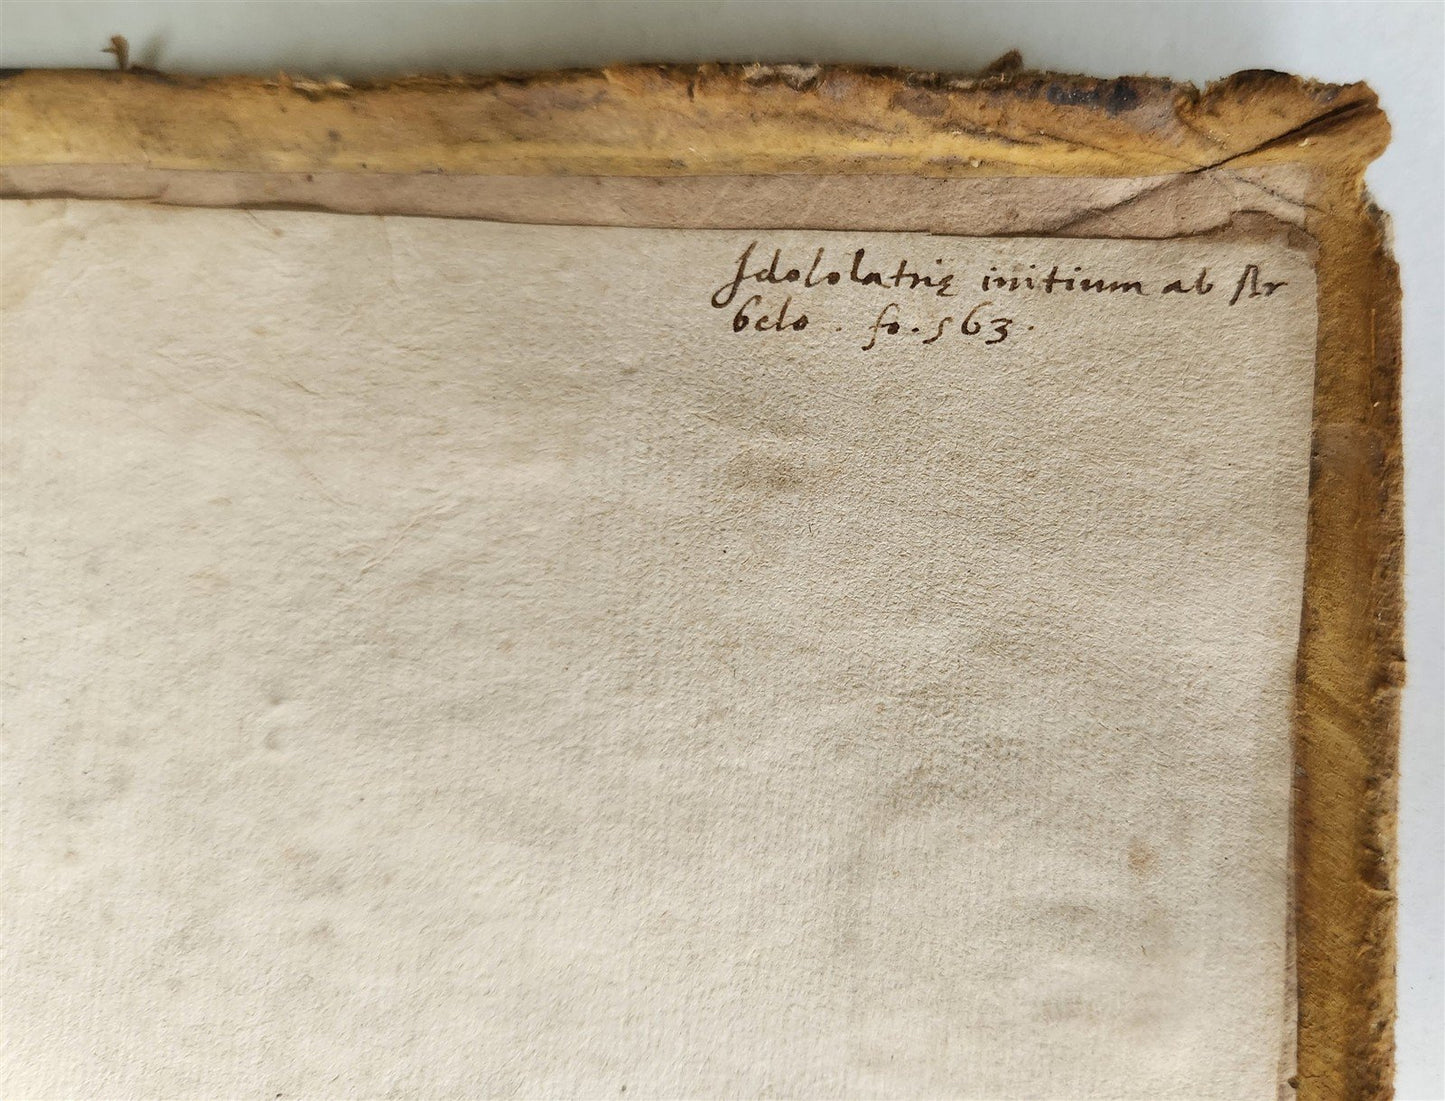 Idololatrię initium ab Ar
belo . fo. 563.